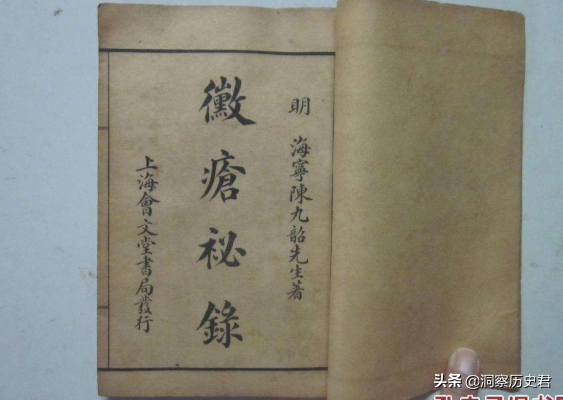 明 海寧陳九韶先生著
黴瘡祕錄
上海會文堂書局發行
头条 @洞察历史君